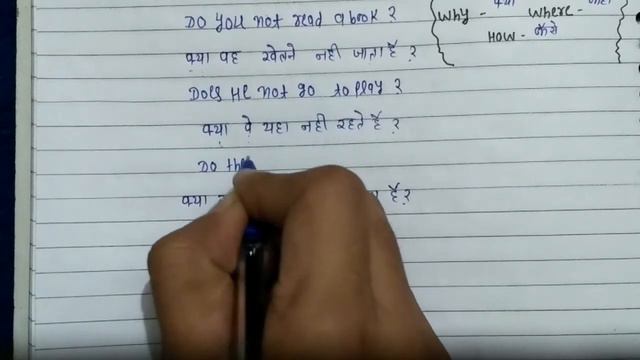 Do you not read a book ?
क्या वह खेलने नही जाता है ?
Does He not go to play ?
क्या वे यहा नही रहते है ?
Do the
क्या है ?
Why - क्या Where -
How - कैसे